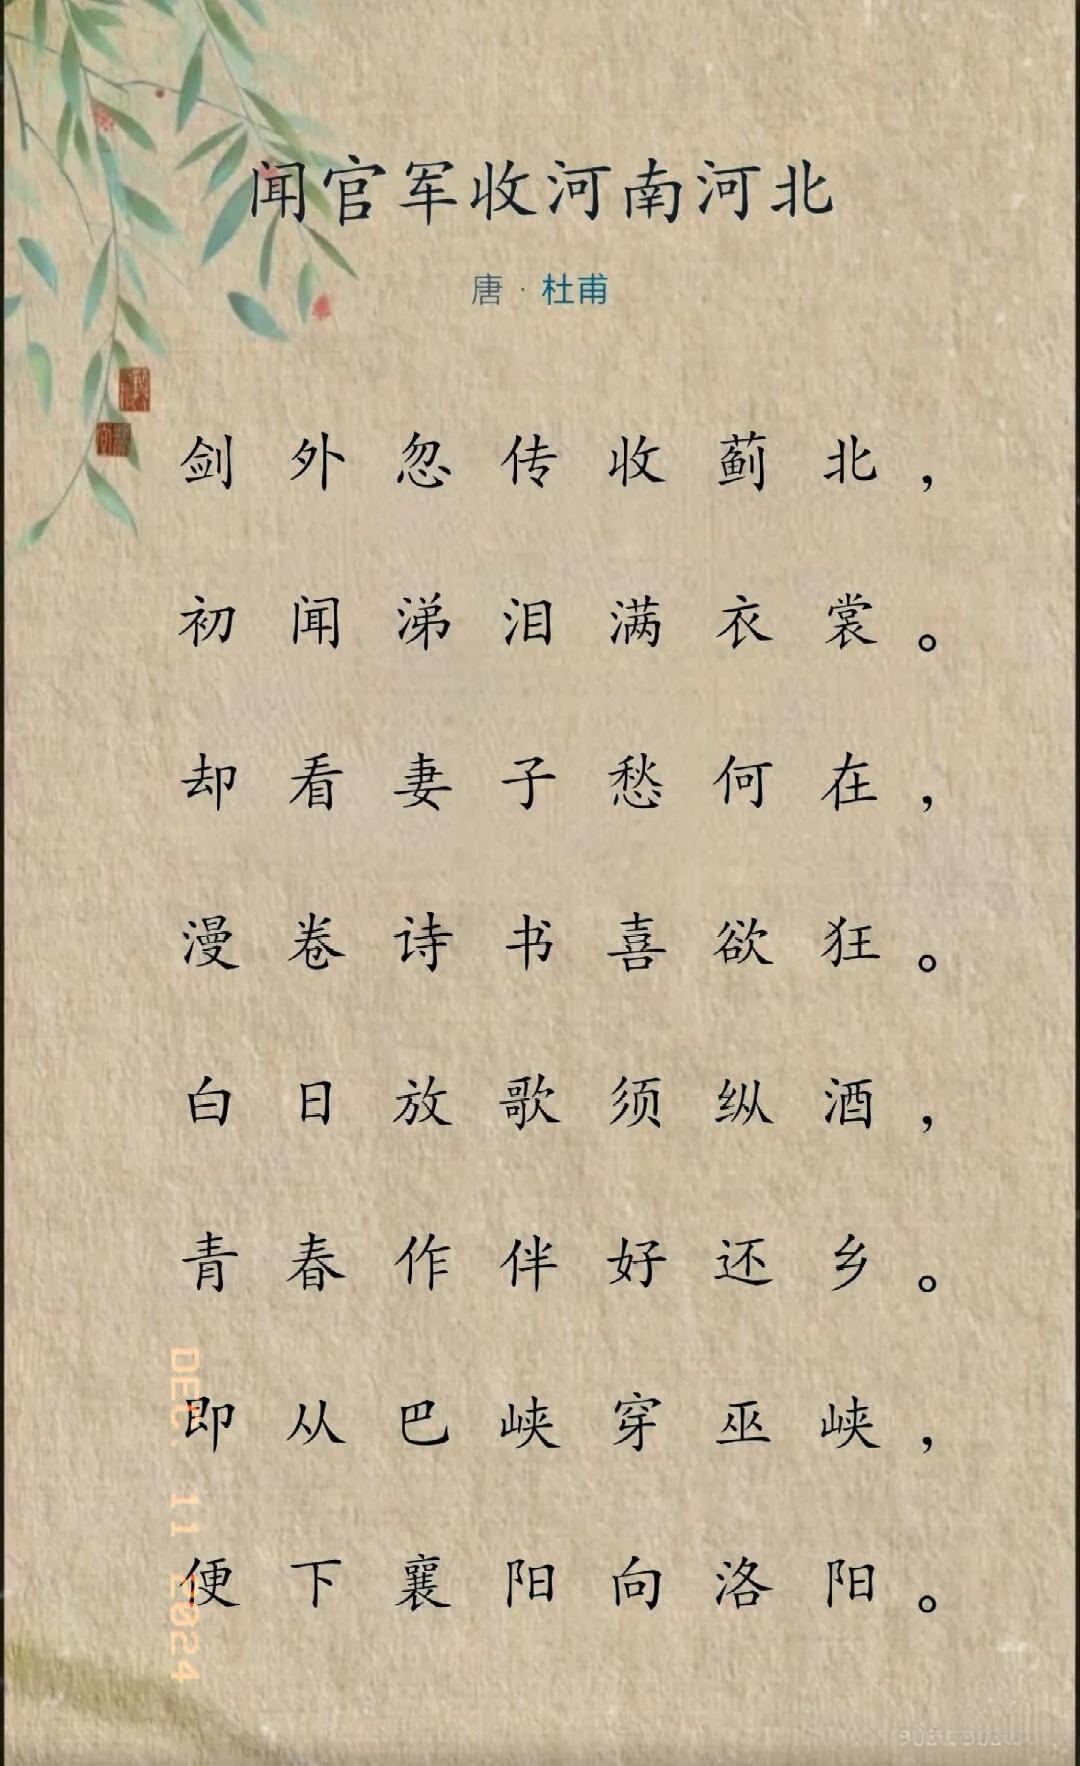 闻官军收河南河北
唐·杜甫
剑外忽传收蓟北，
初闻涕泪满衣裳。
却看妻子愁何在，
漫卷诗书喜欲狂。
白日放歌须纵酒，
青春作伴好还乡。
即从巴峡穿巫峡，
便下襄阳向洛阳。
DEC. 11 2024